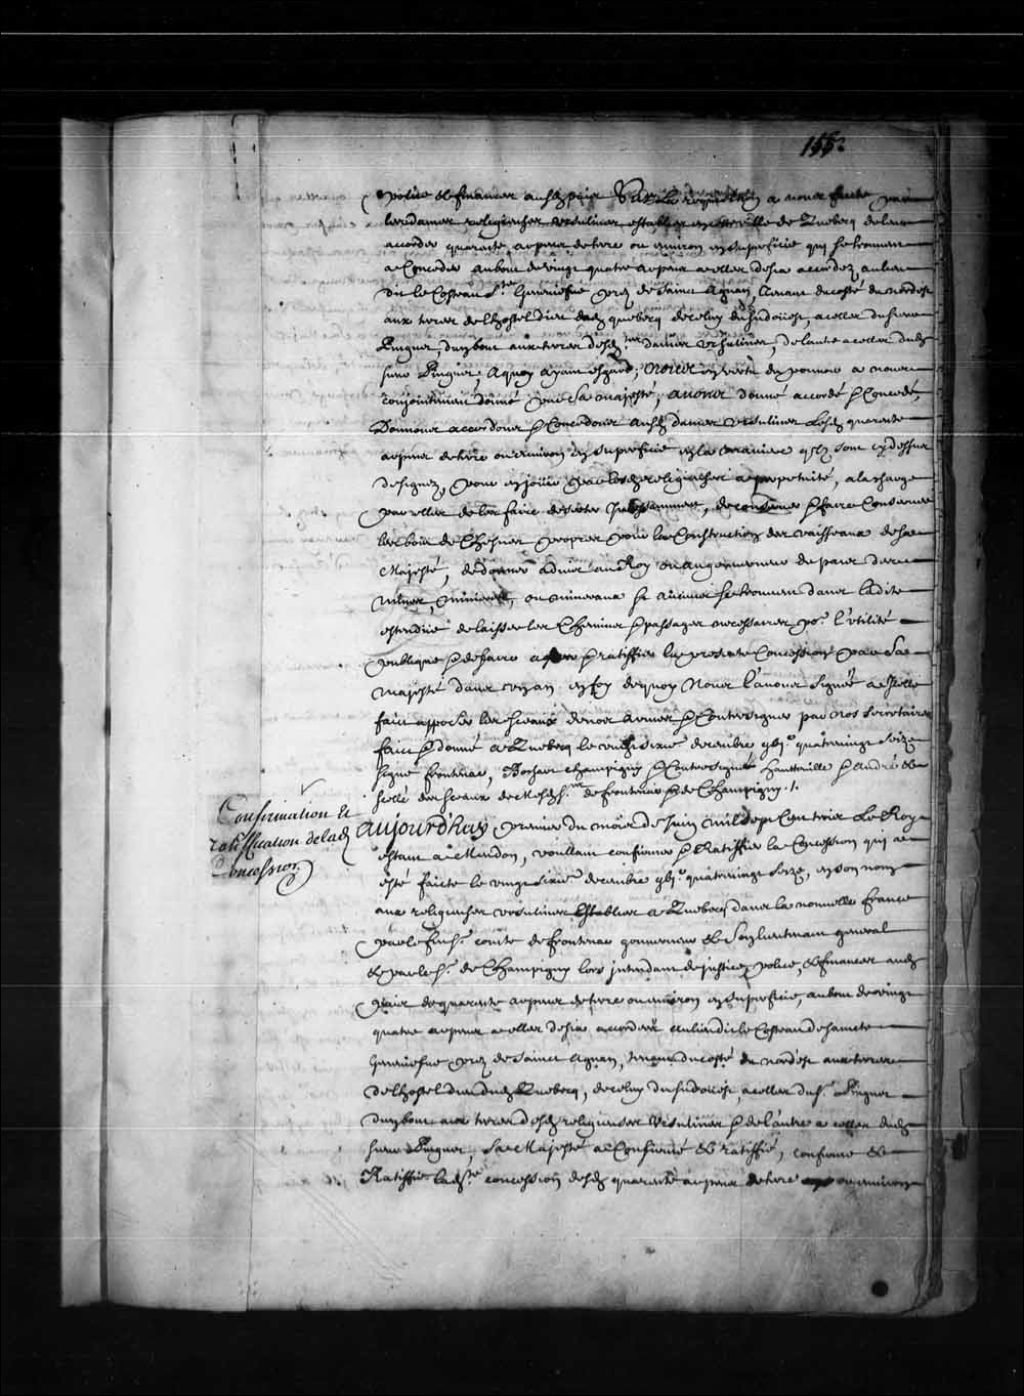 155
police & finances ausd pais Sur la requisition a nous faite par
les dames religieuses ursulines establies en cette ville de Quebecq de leur
accorder quarante arpens de terre ou environ en superficie qui se trouvent
a Conceder au bout de vingt quatre arpens a elles desia accordez au lieu
dit le Costeau Ste Geneviefve prez de Saint Agnan, tenant du costé du nordest
aux terres de l'hostel dieu dud quebecq de celuy du sudoüest, a celles du sieur
Pinguet, d'un bout aux terres desd dames ursulines, de l'autre a celles dud
sieur Pinguet, A quoy ayant esgard, Nous en vertu du pouvoir a nous
conjointement donné par Sa majesté, avons donné accordé & Concedé,
Donnons accordons & Concedons ausd dames ursulines Lesd quarante
arpens de terre ou environ en superficie en la maniere qu'ils sont cy dessus
designez, pour en jouir par lesd religieuses a perpetuité, a la charge
par elles de les faire deserter Incessamment, de conserver & faire Conserver
les bois de Chesnes propres pour la Construction des vaisseaux de sa
Majesté, de donner advis au Roy ou au gouverneur du pais des
mines, minieres, ou mineraux si aucuns se trouvent dans ladite
estendüe de laisser les Chemins & passages necessaires po.r l'utilité
publique & de faire & ratiffier la presente Concession par Sa
majesté dans un an en foy de quoy Nous l'avons Signée a Icelle
fait apposer les sceaux de nos armes & Contresigner par nos secretaires
fait & donné a Quebecq le vingt decembre gbj.c quatrevingt Seize
Signé frontenac, Bochart champigny & Contresigné hautteville & André &
scellé des sceaux de Mesd S.rs de frontenac & de Champigny ./.
Confirmation et
ratiffication de lad
Concession
aujourd'huy premier du mois de Juin mil sept Cent trois Le Roy
estant a Meudon, voullant confirmer & Ratiffier la Concession qui a
esté faicte le vingt decembre gbj.c quatrevingt Seize, en son nom
aux religieuses ursulines Establies a Quebecq dans la nouvelle france
par le feu S.r comte de frontenac gouverneur & Son lieutenant general
& par le S.r de Champigny lors intendant de justice, police, & finances aud
pais de quarante arpens de terre ou environ en superficie, au bout de vingt
quatre arpens a elles desia accordées au lieu dit le Costeau de sainte
Geneviefve prez de Saint Agnan, tenant du costé du nordest aux terres
de l'hostel dieu dud Quebecq, de celuy du sudoüest, a celles du S.r Pinguet
d'un bout aux terres desd religieuses Ursulines & de l'autre a celles dud
sieur Pinguet, Sa Majesté a Confirmé & ratiffié, confirme &
Ratiffie lad.te concession desd quarante arpens de terre ou environ